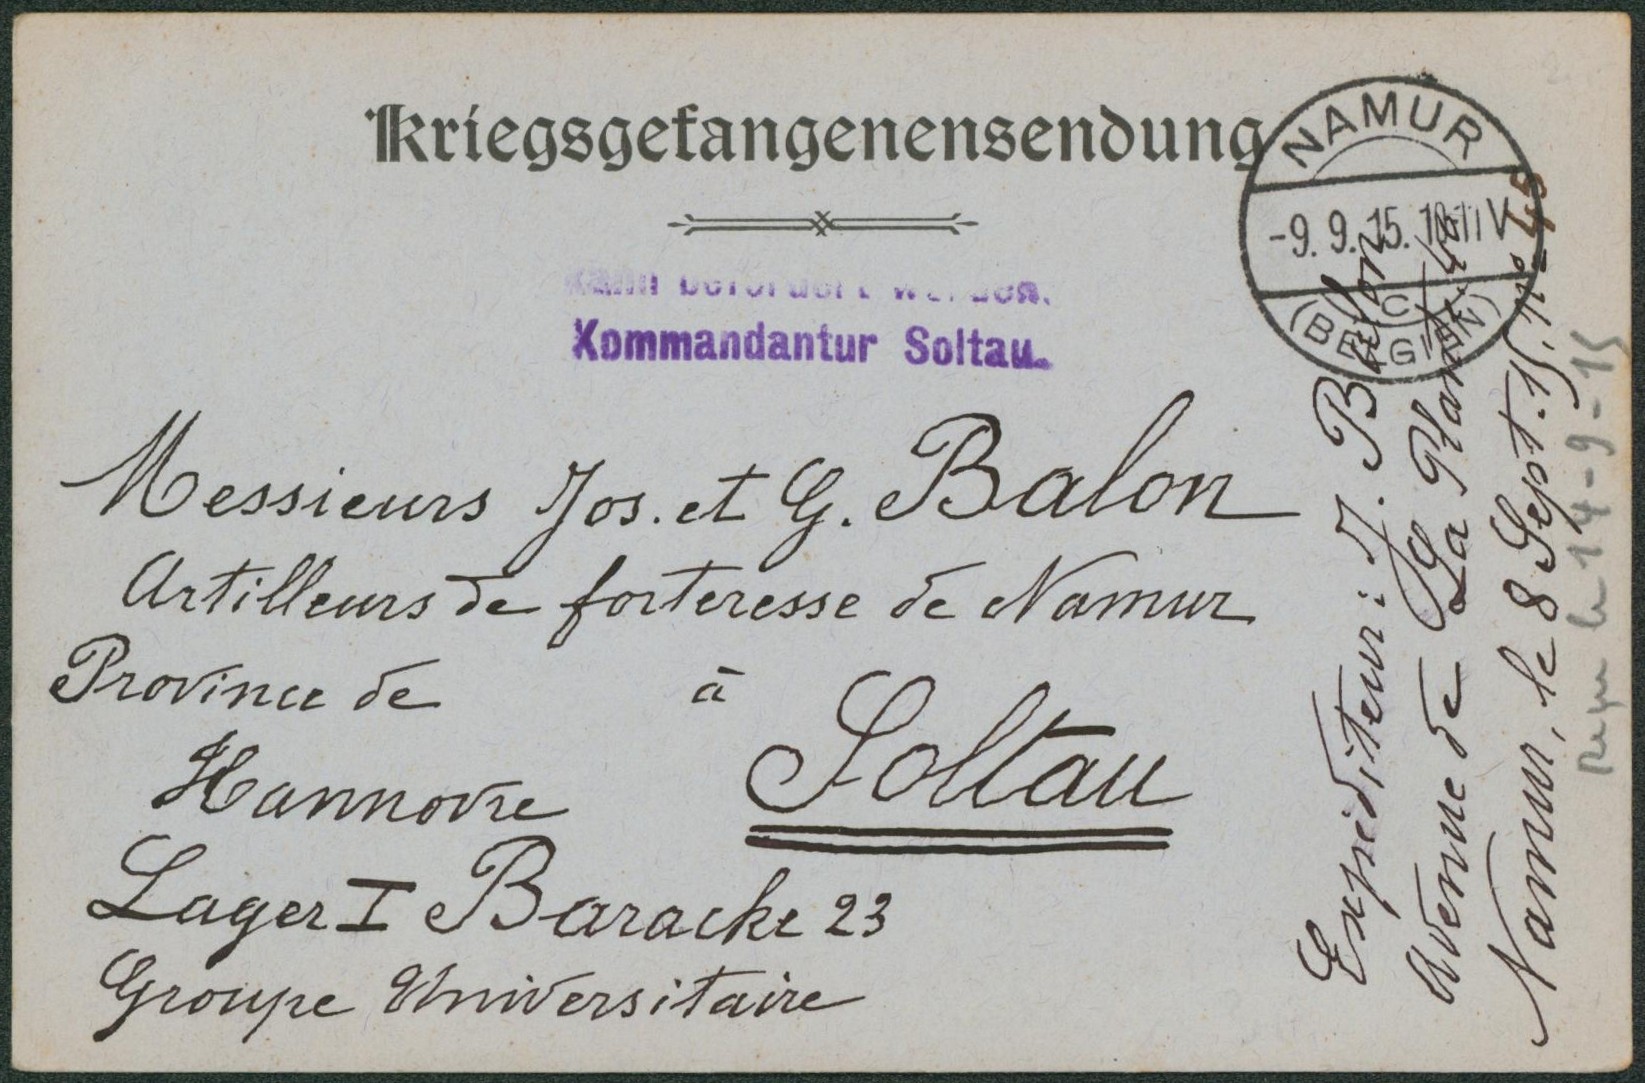 Kriegsgefangenensendung
NAMUR
-9. 9. 15.
C
(BELGIEN)
Kann befördert werden.
Kommandantur Soltau.
Messieurs Jos. et G. Balon
Artilleurs de forteresse de Namur
Province de à
Hannovre Soltau
Lager I Baracke 23
Groupe Universitaire
Expéditeur: J. Balon
Avenue de La Plante
Namur, le 8 Sept. 15. N° 45
Reçue le 14-9-15